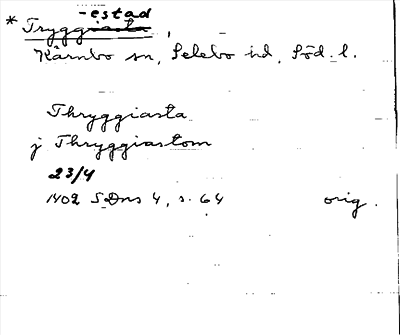 -estad
* Tryggiasta,
Kärnbo sn, Selebo hd, Söd. l.
Thryggiasta
j Thryggiastom
23/4
1402 SDns 4, s. 64 orig.